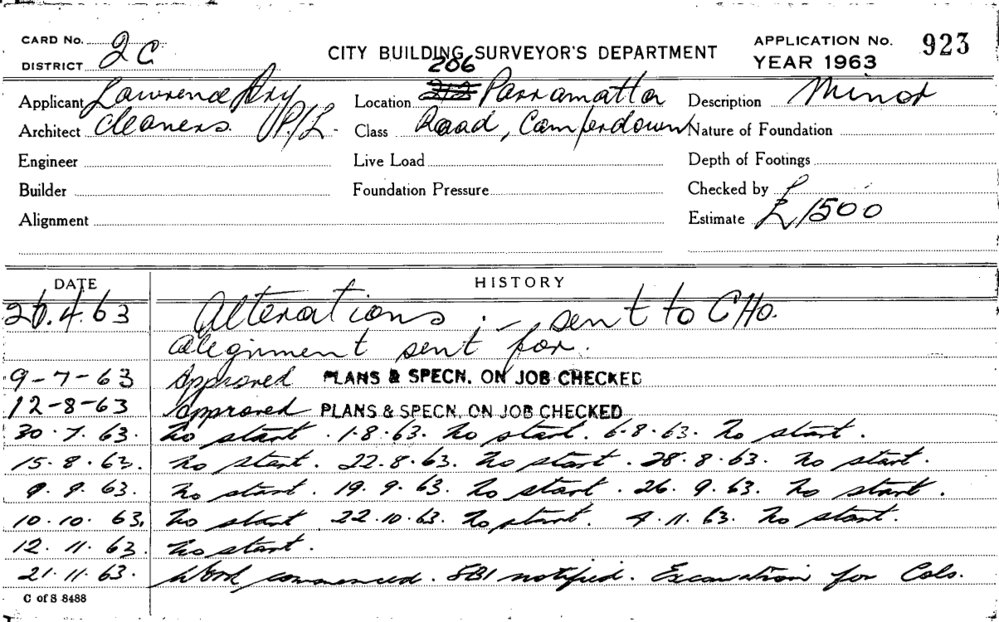 CARD No.
DISTRICT 2C
CITY BUILDING SURVEYOR'S DEPARTMENT
APPLICATION No. 923
YEAR 1963
Applicant Lawrence Dry
Architect Cleaners P/L.
Engineer
Builder
Alignment
Location 286 Parramatta
Class Road, Camperdown
Live Load
Foundation Pressure
Description Minor
Nature of Foundation
Depth of Footings
Checked by
Estimate £1500
DATE HISTORY
26.4.63 Alterations :- sent to CHO.
alegnment sent for.
9-7-63 Approved PLANS & SPECN. ON JOB CHECKED
12-8-63 Approved PLANS & SPECN. ON JOB CHECKED
30.7.63. No start. 1.8.63. No start. 6.8.63. No start.
15.8.63. No start. 22.8.63. No start. 28.8.63. No start.
9.9.63. No start. 19.9.63. No start. 26.9.63. No start.
10.10.63. No start 22.10.63. No start. 4.11.63. No start.
12.11.63. No start.
21.11.63. Work commenced. SBI notified. Excavation for Cols.
C of S 8488